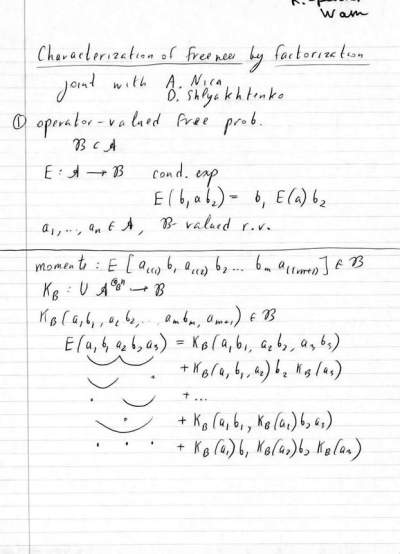 Wam
Characterization of freeness by factorization
joint with A. Nica
D. Shlyakhtenko
① operator-valued free prob.
B ⊂ A
E : A → B cond. exp
E(b₁ab₂) = b₁ E(a) b₂
a₁, ..., aₙ ∈ A, B-valued r.v.
moments : E [ a₍₁₎ b₁ a₍₂₎ b₂ ... bₘ a₍ₘ₊₁₎ ] ∈ B
K_B : ∪ A^{⊗_B n} → B
K_B(a₁b₁, a₂b₂, ... aₘbₘ, aₘ₊₁) ∈ B
E(a₁b₁a₂b₂a₃) = K_B(a₁b₁, a₂b₂, a₃b₃)
+ K_B(a₁b₁, a₂) b₂ K_B(a₃)
+ ...
+ K_B(a₁b₁, K_B(a₂)b₂a₃)
+ K_B(a₁)b₁ K_B(a₂)b₂ K_B(a₃)